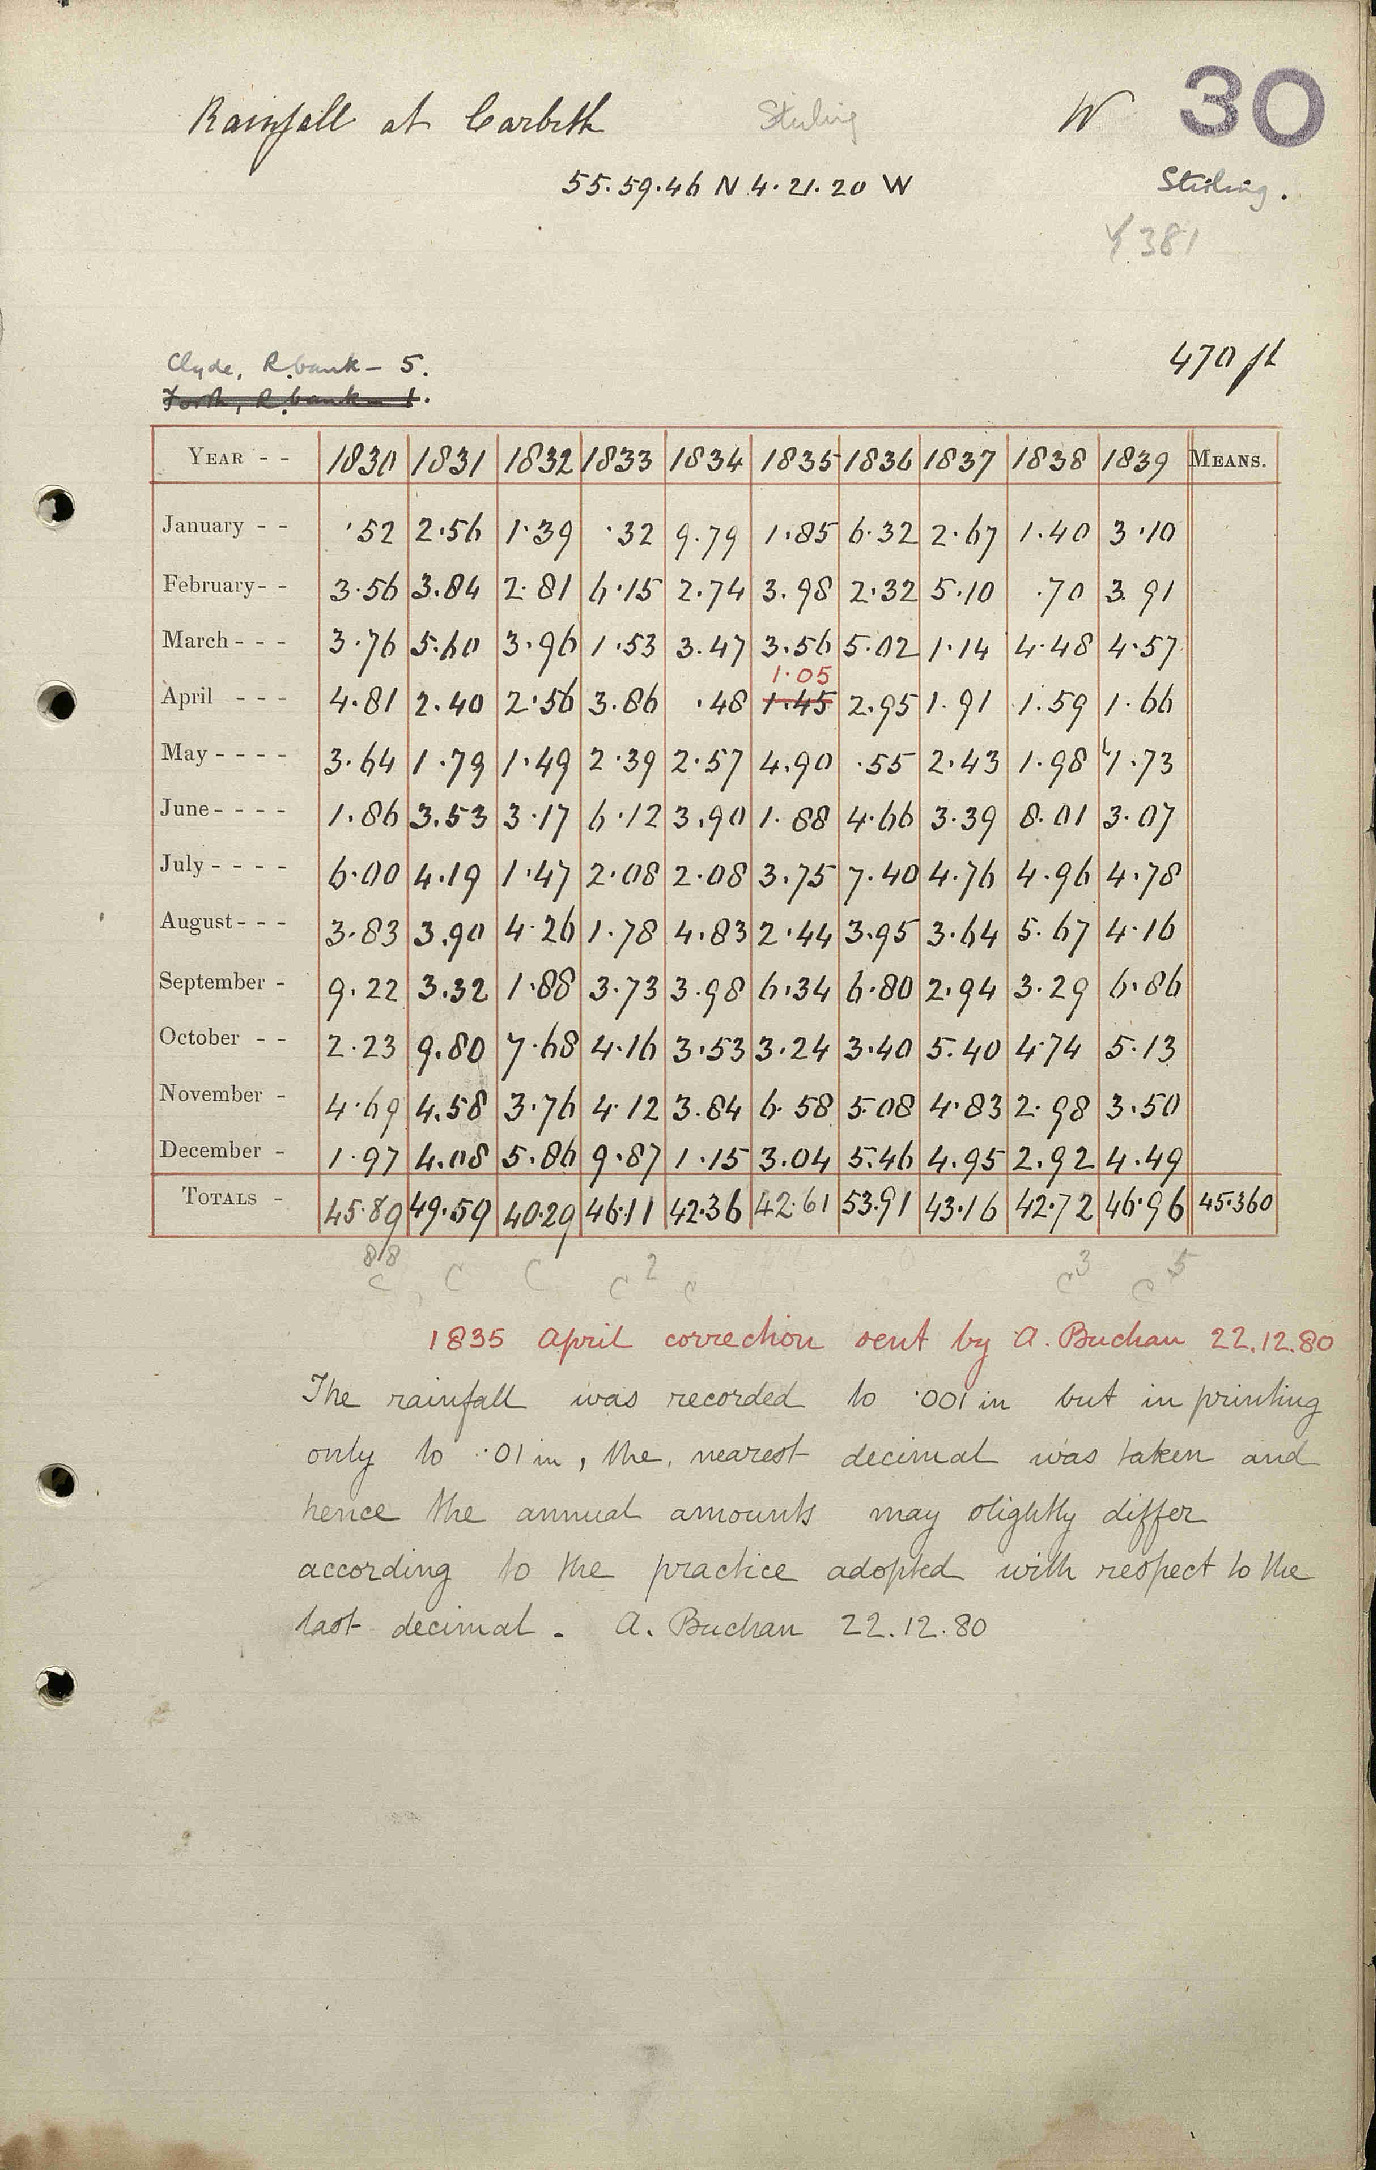 Rainfall at Carbeth Stirling W 30
55.59.46 N 4.21.20 W Stirling.
381
Clyde, R. bank - 5. 470 ft
Forth, R. bank - 1.
YEAR - - 1830 1831 1832 1833 1834 1835 1836 1837 1838 1839 MEANS.
January - - .52 2.56 1.39 .32 9.79 1.85 6.32 2.67 1.40 3.10
February - - 3.56 3.84 2.81 6.15 2.74 3.98 2.32 5.10 .70 3.91
March - - - 3.76 5.60 3.96 1.53 3.47 3.56 5.02 1.14 4.48 4.57
1.05
April - - - 4.81 2.40 2.56 3.86 .48 1.45 2.95 1.91 1.59 1.66
May - - - - 3.64 1.79 1.49 2.39 2.57 4.90 .55 2.43 1.98 1.73
June - - - - 1.86 3.53 3.17 6.12 3.90 1.88 4.66 3.39 8.01 3.07
July - - - - 6.00 4.19 1.47 2.08 2.08 3.75 7.40 4.76 4.96 4.78
August - - - 3.83 3.90 4.26 1.78 4.83 2.44 3.95 3.64 5.67 4.16
September - 9.22 3.32 1.88 3.73 3.98 6.34 6.80 2.94 3.29 6.86
October - - 2.23 9.80 7.68 4.16 3.53 3.24 3.40 5.40 4.74 5.13
November - 4.69 4.58 3.76 4.12 3.84 6.58 5.08 4.83 2.98 3.50
December - 1.97 4.08 5.86 9.87 1.15 3.04 5.46 4.95 2.92 4.49
TOTALS - 45.89 49.59 40.29 46.11 42.36 42.61 53.91 43.16 42.72 46.96 45.360
88 2 3 5
C C C C C C C
1835 April correction sent by A. Buchan 22.12.80
The rainfall was recorded to .001 in but in printing
only to .01 in, the nearest decimal was taken and
hence the annual amounts may slightly differ
according to the practice adopted with respect to the
last decimal. A. Buchan 22.12.80